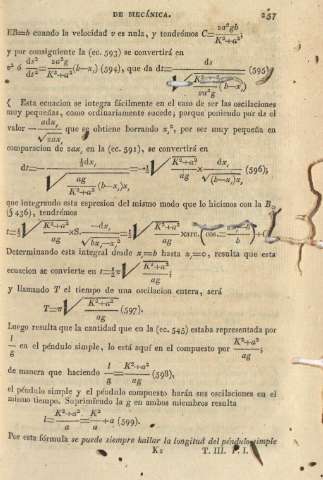 DE MECÁNICA. 257
EB=b cuando la velocidad v es nula, y tendrémos C=2a²gb/(K²+a²);
y por consiguiente la (ec. 593) se convertirá en
v² ó ds²/dt²=2a²g/(K²+a²)(b-x,) (594), que da dt= ds (595)
Esta ecuacion se integra fácilmente en el caso de ser las oscilaciones
muy pequeñas, como ordinariamente sucede; porque poniendo por ds el
valor -adx,/√2ax, que se obtiene borrando x,², por ser muy pequeña en
comparacion de 2ax, en la (ec. 591), se convertirá en
dt= =-½√(K²+a²)/ag × dx,/√(b-x,)x, (596);
que integrando esta expresion del mismo modo que lo hicimos con la B
(§ 436), tendrémos
t=½√(K²+a²)/ag ×S.-dx,/√bx,-x,² =½√(K²+a²)/ag ×arc.(cos.=
Determinando esta integral desde x,=b hasta x,=0, resulta que esta
ecuacion se convierte en t=½π√(K²+a²)/ag;
y llamando T el tiempo de una oscilacion entera, será
T=π√(K²+a²)/ag (597).
Luego resulta que la cantidad que en la (ec. 545) estaba representada por
l/g en el péndulo simple, lo está aquí en el compuesto por (K²+a²)/ag;
de manera que haciendo l/g=(K²+a²)/ag (598),
el péndulo simple y el péndulo compuesto harán sus oscilaciones en el
mismo tiempo. Suprimiendo la g en ambos miembros resulta
l=(K²+a²)/a=K²/a+a (599).
Por esta fórmula se puede siempre hallar la longitud del péndulo simple
K2 T. III. P. I.